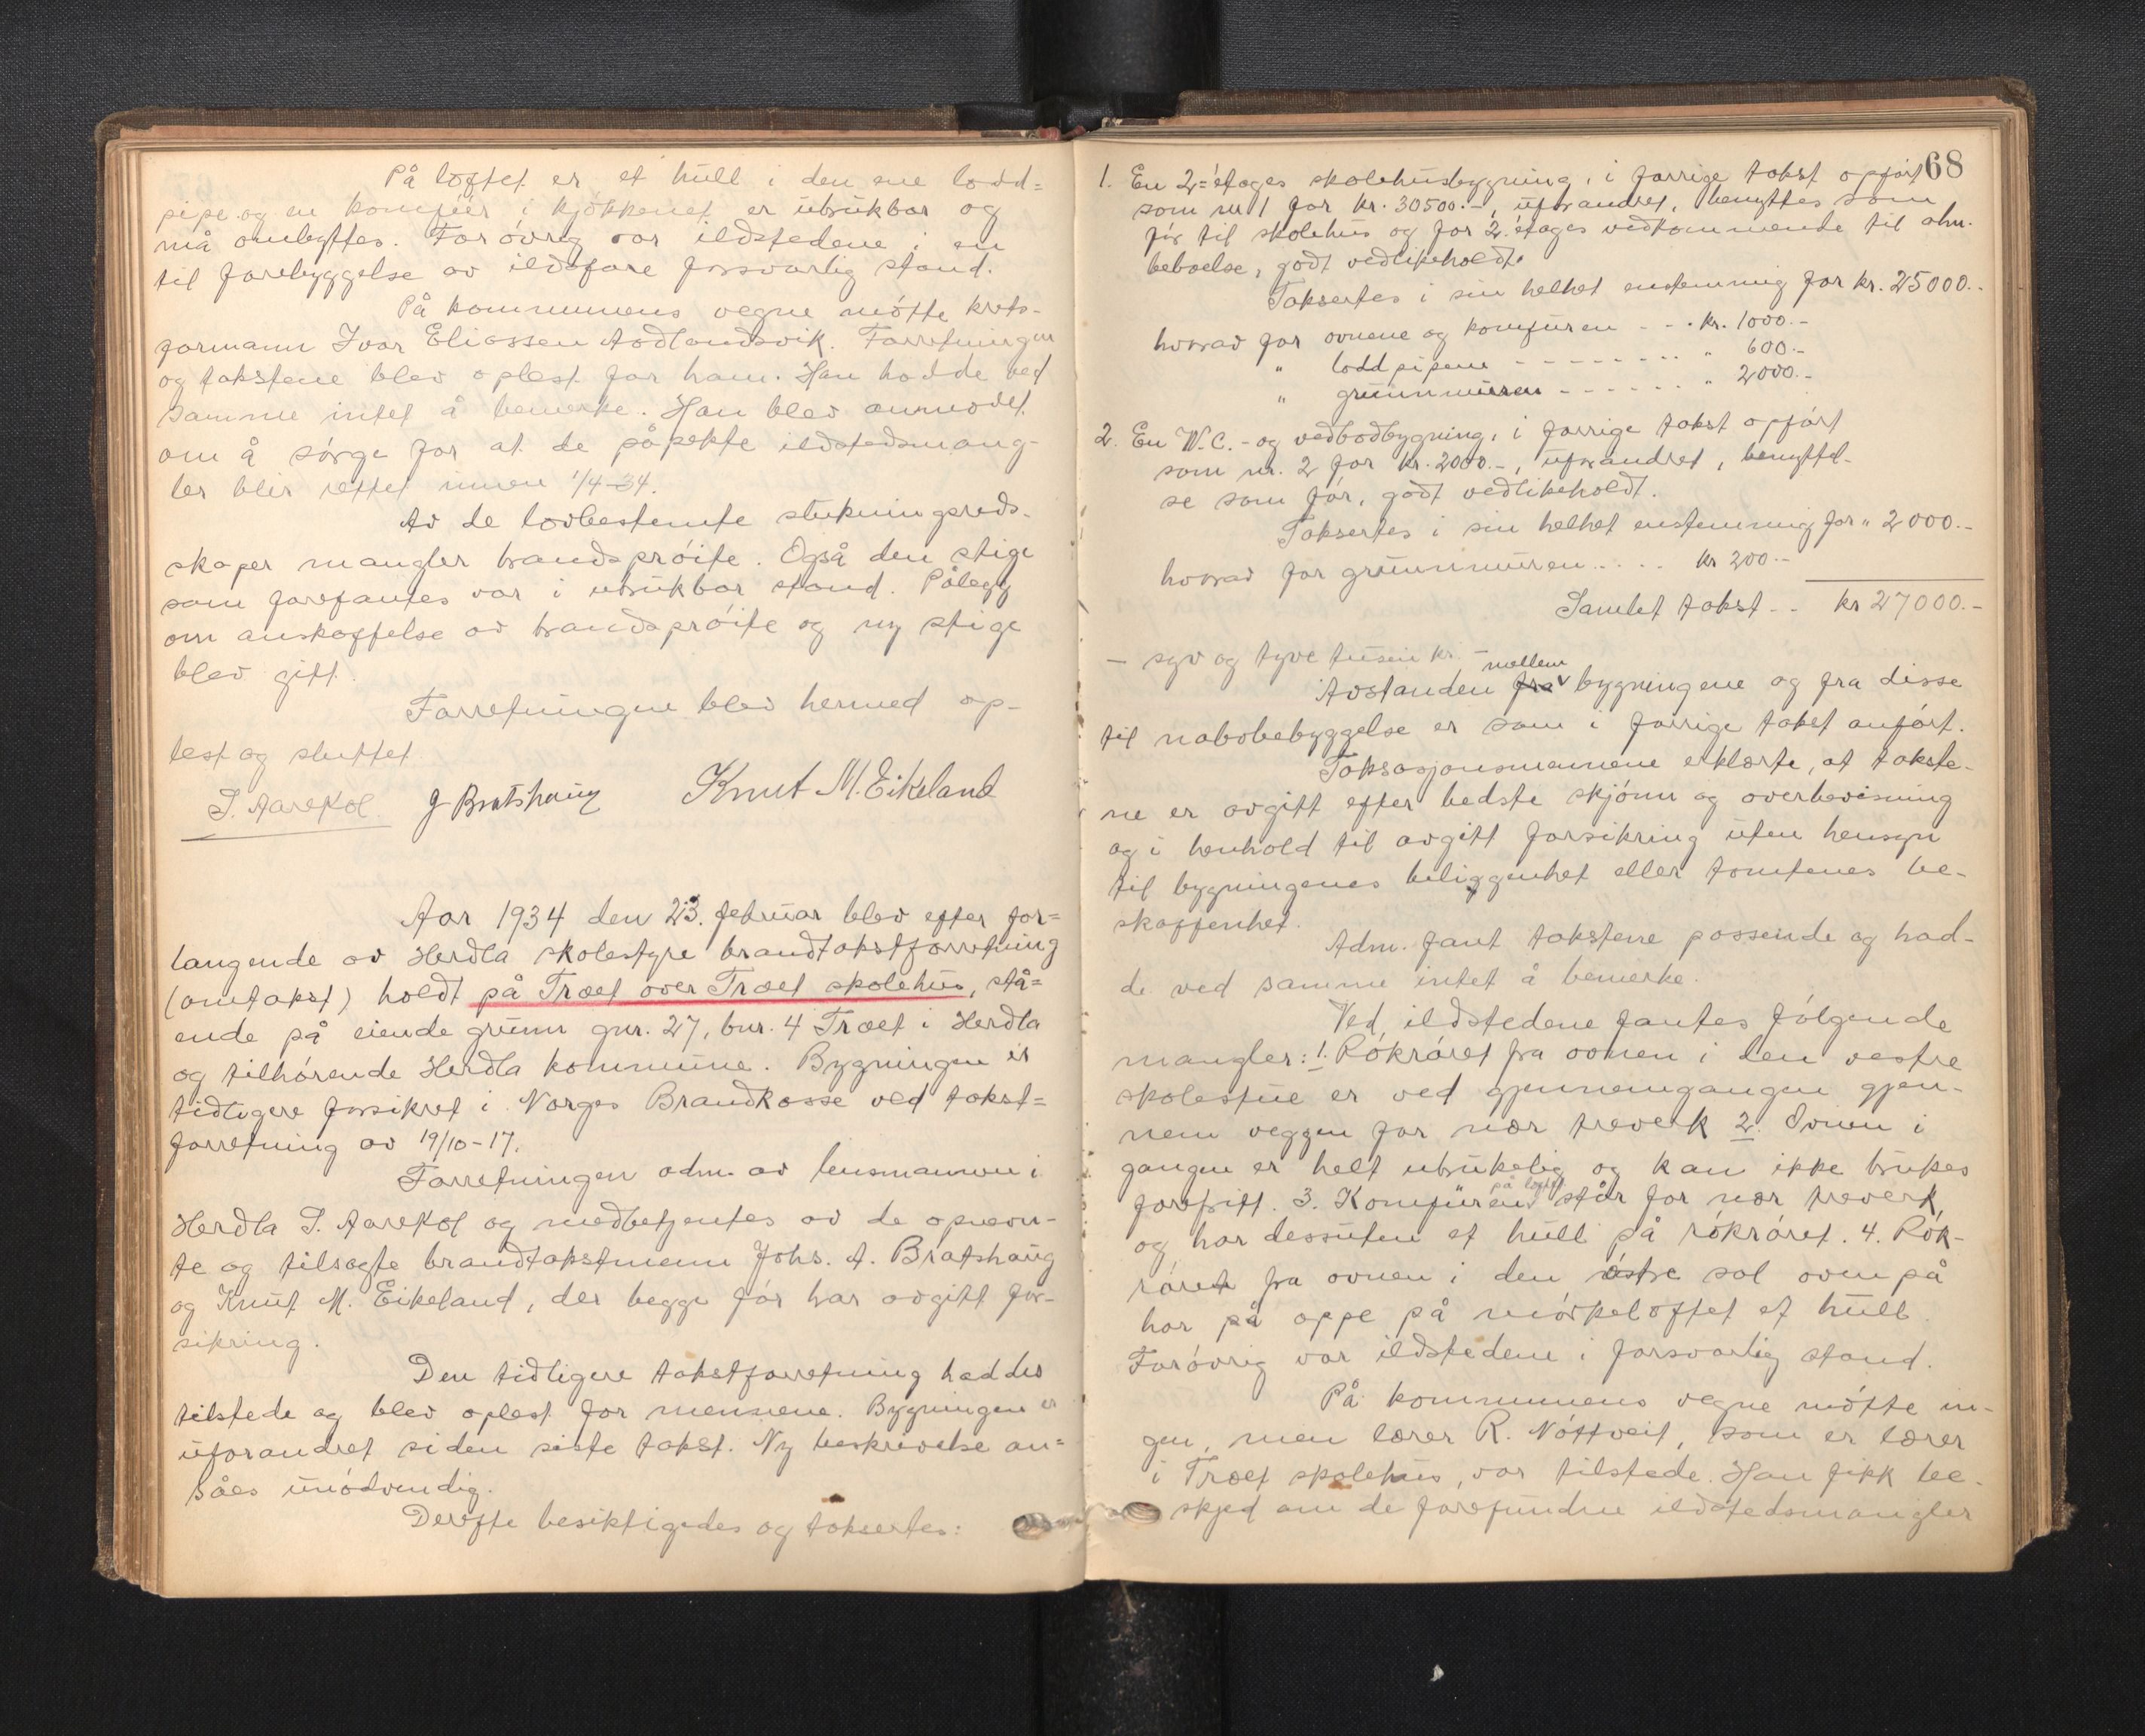 På loftet er et hull i den ene lodd=
pipe og en komfür i kjøkkenet er übrükbar og
må ombyttes. Forøvrig var ildstedene i en
til forebyggelse av ildsfare forsvarlig stand.
På kommunens vegne møtte krets-
formann Ivar Eliassen Aadlandsvik. Forretningen
og takstene blev oplest for ham. Han hadde ved
samme intet å bemerke. Han blev anmodet
om å sørge for at de påpekte ildstedsmang-
ler blir rettet innen 1/4-34.
Av de lovbestemte slukningsreds-
skaper mangler brandsprøite. Også den stige
som forefantes var i ubrukbar stand. Pålegg
om anskaffelse av brandsprøite og ny stige
blev gitt.
Forretningen blev hermed op-
lest og sluttet.
I. Aarekol. J Bratshaug Knut M. Eikeland
Aar 1934 den 23. februar blev efter for=
langende av Herdla skolestyre brandtakstforretning
(omtakst) holdt på Træet over Træet skolehus, stå=
ende på eiende grunn gnr. 27, bnr. 4 Træet i Herdla
og tilhørende Herdla kommune. Bygningen er
tidligere forsikret i Norges Brandkasse ved takst=
forretning av 19/10-17.
Forretningen adm. av lensmannen i
Herdla I. Aarekol og medbetjentes av de opnevn-
te og tilsagte brandtakstmenn Johs. A. Bratshaug
og Knut M. Eikeland, der begge før har avgitt for-
sikring.
Den tidligere takstforretning haddes
tilstede og blev oplest for mennene. Bygningen er
uforandret siden siste takst. Ny beskrivelse an=
såes unødvendig.
Derefte besiktigedes og taksertes:
68
1. En 2=etages skolehusbygning, i forrige takst opført
som nr 1 for kr. 30500.-, uforandret, benyttes som
før til skolehus og for 2. etages vedkommende til alm.
beboelse, godt vedlikeholdt.
Taksertes i sin helhet enstemmig for kr. 25000.-
hvorav for ovnene og komfuren - - - kr. 1000.-
" loddpipene - - - - - - - - " 600.-
" grunnmuren - - - - - - " 2000.-
2. En W.C.- og vedbodbygning, i forrige takst opført
som nr. 2 for kr. 2000.-, uforandret, benyttel-
se som før, godt vedlikeholdt.
Taksertes i sin helhet enstemmig for " 2000.-
hvorav for grunnmuren..... kr 200.-
Samlet takst - - kr 27000.-
- syv og tyve tusen kr. -
Avstanden fra mellem bygningene og fra disse
til nabobebyggelse er som i forrige takst anført.
Taksasjonsmennene erklærte, at takste-
ne er avgitt efter bedste skjønn og overbevisning
og i henhold til avgitt forsikring uten hensyn
til bygningenes beliggenhet eller tomtenes be-
skaffenhet.
Adm. fant takstene passende og had-
de ved samme intet å bemerke.
Ved ildstedene fantes følgende
mangler: 1. Røkrøret fra ovnen i den vestre
skolestue er ved gjennemgangen gjen-
nem veggen for nær treverk 2. Ovnen i
gangen er helt ubrukelig og kan ikke brukes
forefritt. 3. Komfuren på loftet står for nær treverk
og har dessuten et hull på røkrøret. 4. Røk-
røret fra ovnen i den østre sal ovenpå
har på oppe på mørkeloftet et hull.
Forøvrig var ildstedene i forsvarlig stand.
På kommunens vegne møtte in-
gen, men lærer R. Nøttveit, som er lærer
i Træet skolehus, var tilstede. Han fikk be-
skjed om de forefundne ildstedsmangler